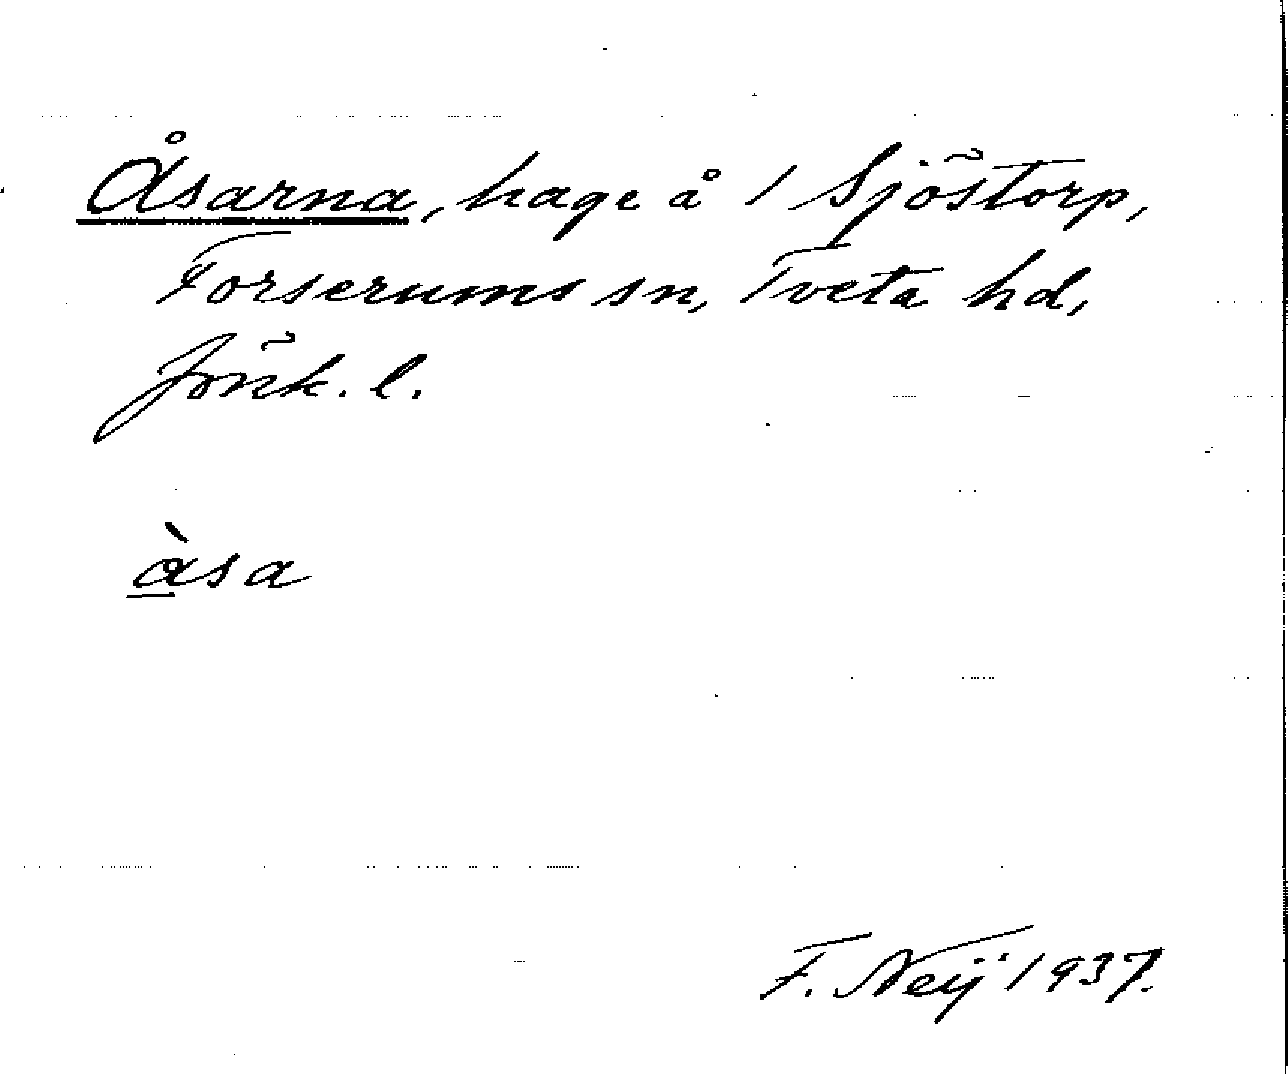 Åsarna, hage å 1 Sjöstorp,
Forserums sn, Tveta hd,
Jönk. l.
å̀sa
F. Neij 1937.